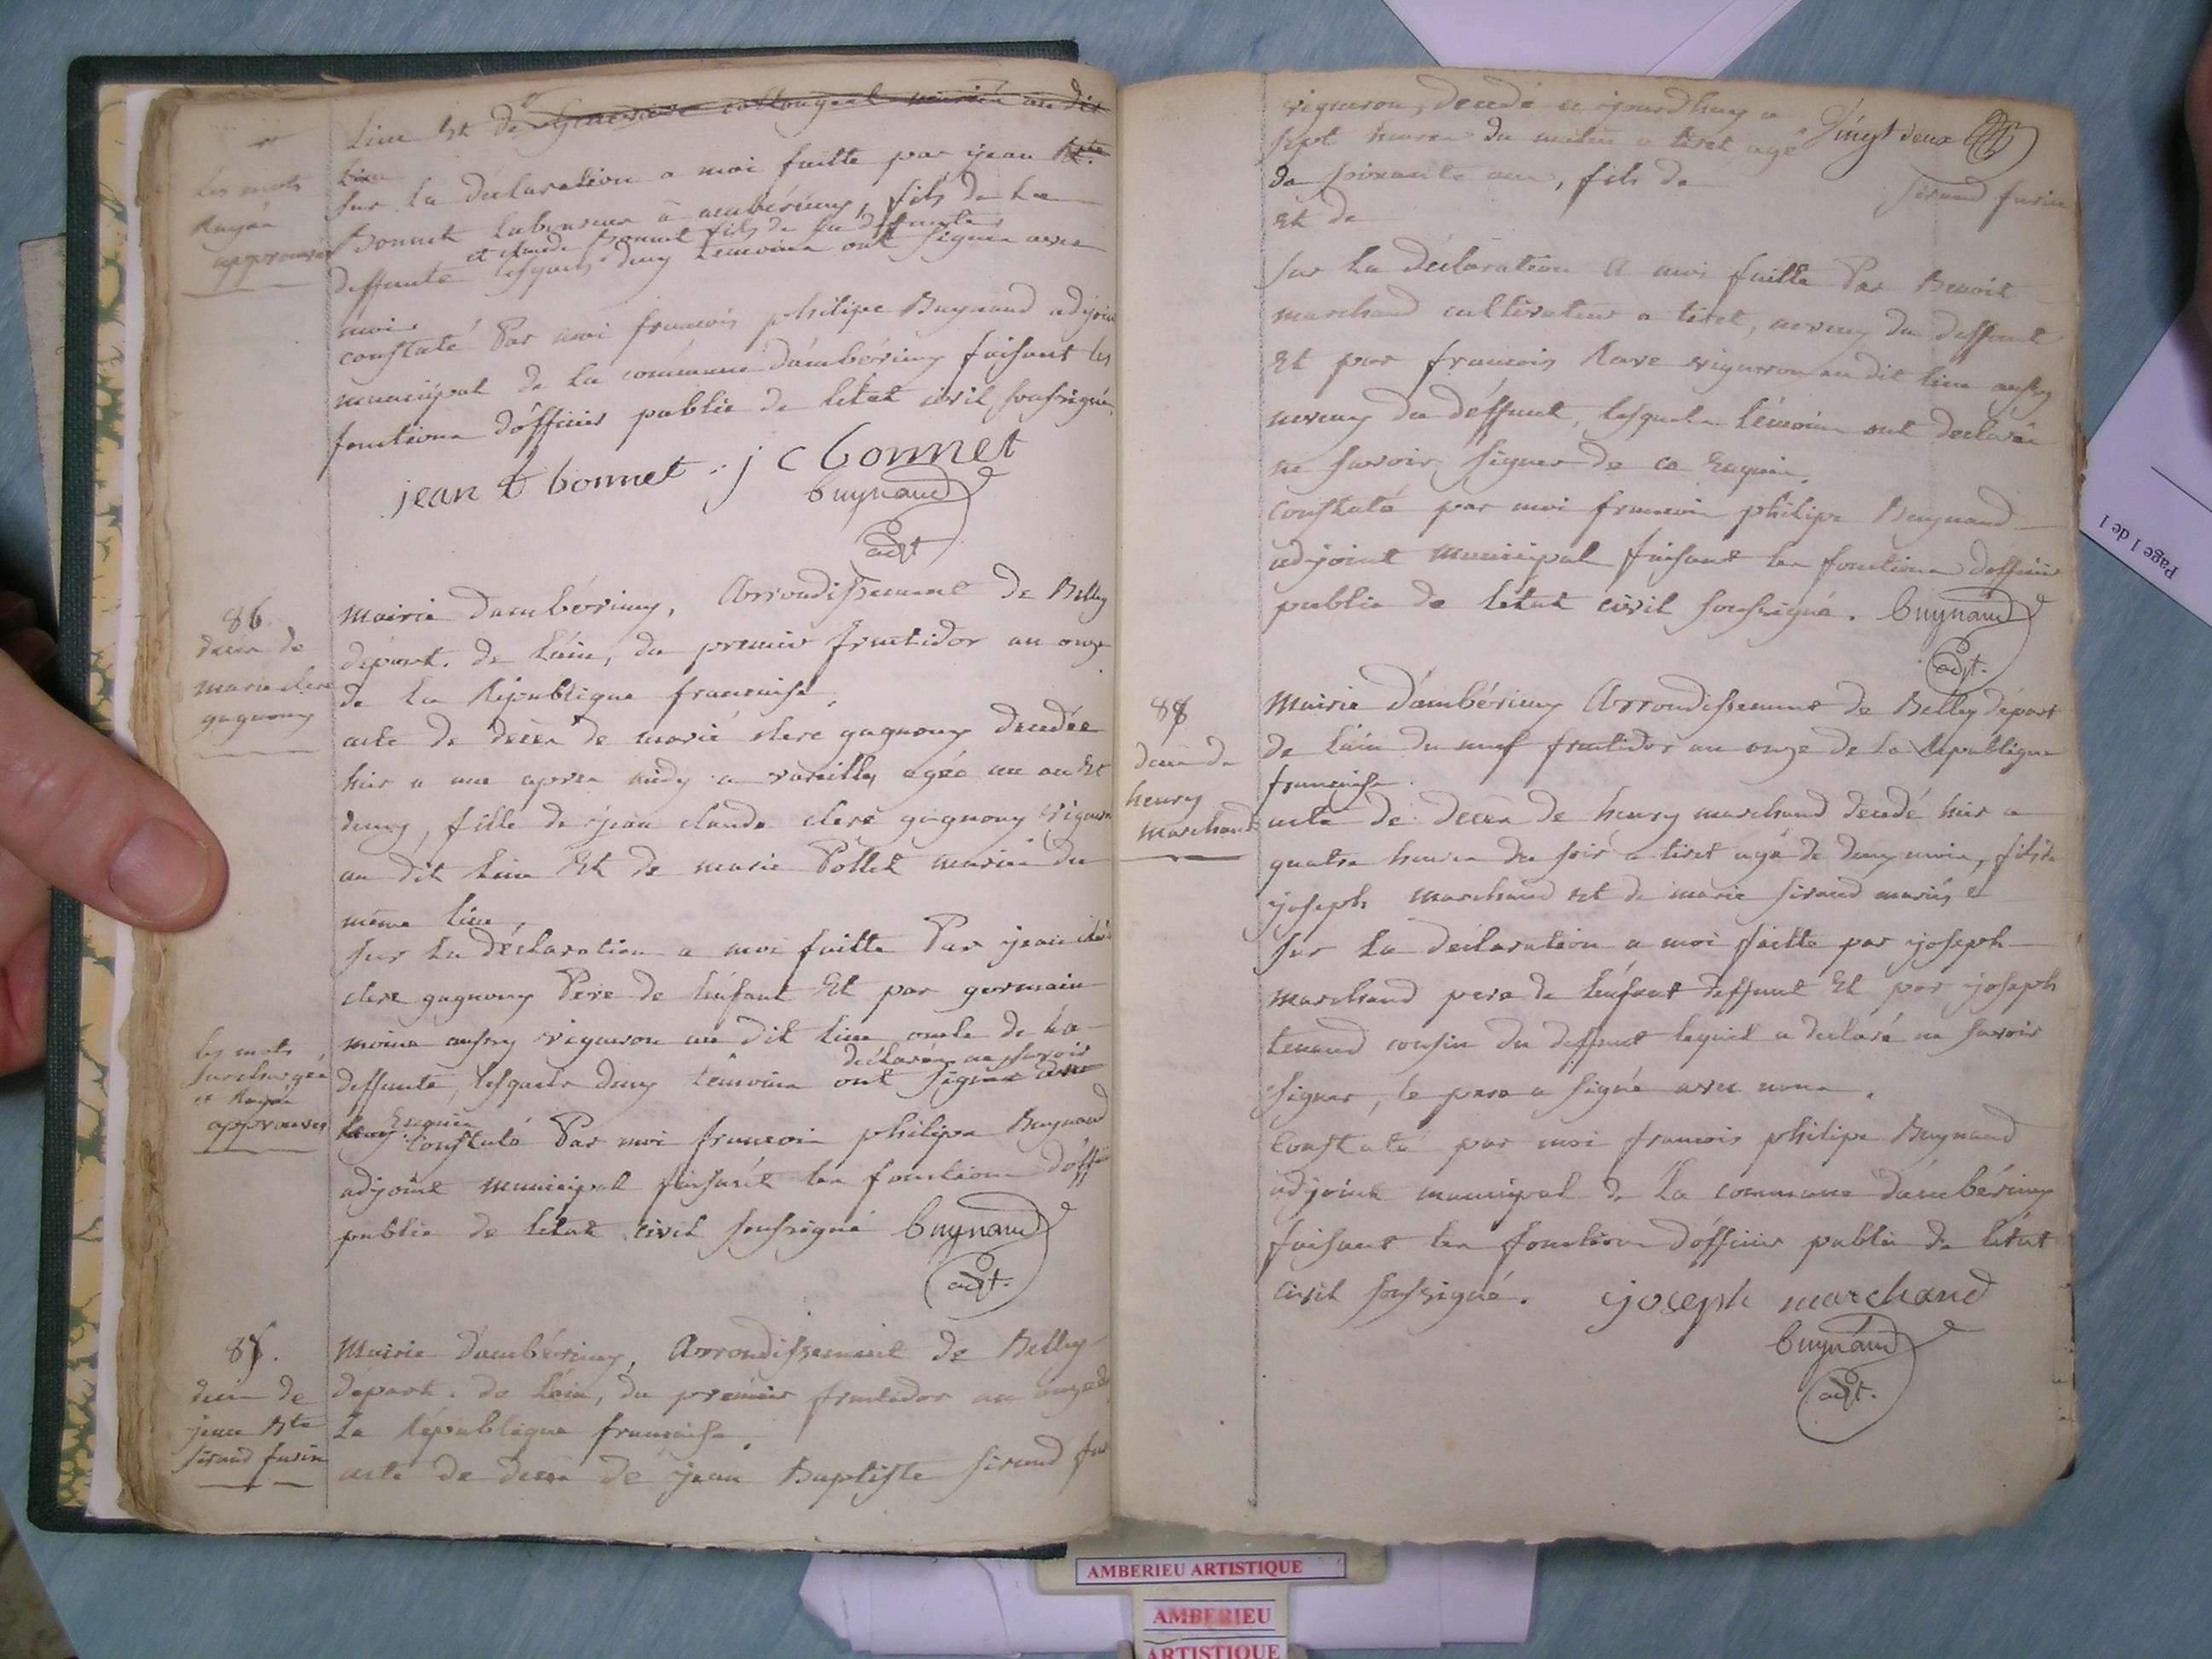 lieu Et de Genevieve collonget mariés au dit
lieu
Sur la déclaration a moi faitte par jean Bte
Bonnet laboureur a ambérieux, fils de la
et claude Bonnet fils de la deffunte
deffunte lesquels deux temoins ont signés avec
moi.
constaté Par moi françois philipe Buynand adjoint
municipal de la commune d'ambérieux faisant les
fonctions d'officier public de letat civil soussigné,
jean b bonnet j c bonnet
buynand
adjt
les mots
Rayés
approuvés
86.
décès de
marie clerc
gagneux
Mairie d'ambérieux, Arrondissement de Belley
départ. de l'ain, du premier fructidor an onze
de la République française,
acte de décès de marie clerc gagneux decedée
hier a une apres midy a vareilles, agée un an Et
demy, fille de jean claude clerc gagneux vigneron
au dit lieu Et de marie Pollet mariés du
même lieu,
sur la déclaration a moi faitte Par jean
clerc gagneux Pere de l'enfant Et par germain
moine aussy vigneron au dit lieu oncle de la
déclarés ne savoir
deffunte, lesquels deux temoins ont signés avec
Enquis
Constaté Par moi francois philipe Buynand
adjoint municipal faisant les fonctions d'offi
public de letat civil soussigné buynand
adjt.
les mots
surchargés
et Rayés
approuvés
87.
décès de
jean Bte
sirand fusin
Mairie d'ambérieux, Arrondissement de Belley
départ. de l'ain, du premier fructidor an onze de
La République française.
acte de décès de jean Baptiste sirand fus
vigneron, decedé ce jourdhuy a
sept heures du matin a tiret agé
Vingt deux
de soixante ans, fils de sirand fusin
Et de
sur la déclaration a moi faitte Par Benoit
marchand cultivateur a tiret, neveux du deffunt
Et par francois Rave vigneron au dit lieu aussy
neveux du déffunt, lesquels témoins ont declarés
ne savoir signer de ce Enquis.
Constaté par moi francois philipe Buynand
adjoint municipal faisant les fonctions d'officier
public de létat civil soussigné. buynand
adjt.
88
décès de
henry
marchand
Mairie d'ambérieux Arrondissement de Belley départ
de l'ain du neuf fructidor an onze de la République
française.
acte de décès de henry marchand decedé hier a
quatre heures du soir a tiret agé de deux mois, fils de
joseph marchand et de marie sirand mariés
sur la déclaration a moi faitte par joseph
marchand pere de l'enfant deffunt Et par joseph
tenand cousin du deffunt lequel a declaré ne savoir
signer, le pere a signé avec nous.
Constaté par moi francois philipe Buynand
adjoint municipal de la commune d'ambérieux
faisant les fonctions d'officier public de létat
civil soussigné. joseph marchand
buynand
adjt.
Page 1 de 1
AMBERIEU ARTISTIQUE
AMBERIEU
ARTISTIQUE